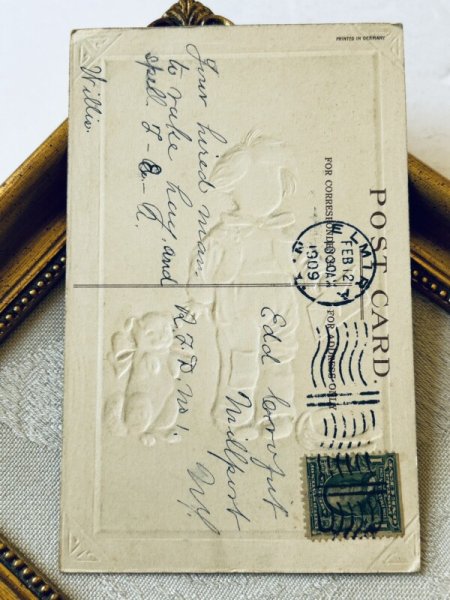 PRINTED IN GERMANY
POST CARD.
FOR CORRESPONDENCE
FOR ADDRESS ONLY
ELMIRA, N.Y.
FEB 12
1030 AM
1909
Your hired man
to rake hay, and
spell. I-
Willie.
Edd
Millport
R.F.D. No 1.
NY.